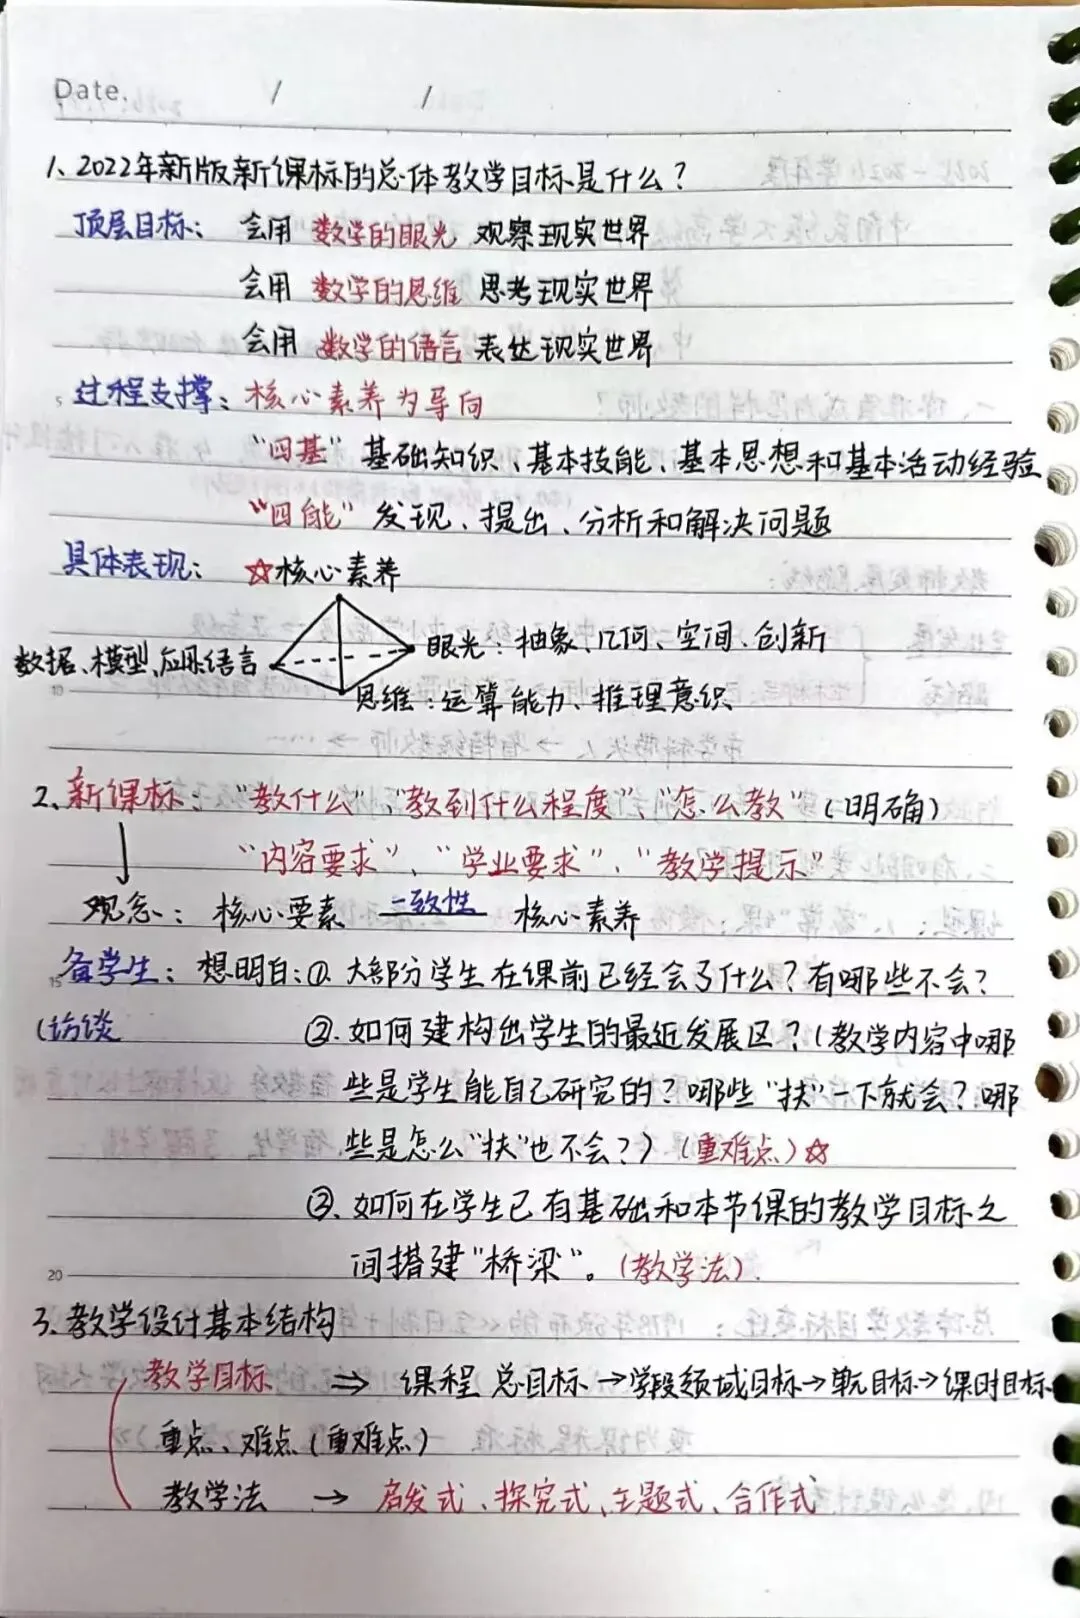 Date.    /    /
1、2022年新版新课标的总体教学目标是什么？
顶层目标：会用 数学的眼光 观察现实世界
会用 数学的思维 思考现实世界
会用 数学的语言 表达现实世界
5 过程支撑：核心素养为导向
“四基” 基础知识、基本技能、基本思想和基本活动经验
“四能” 发现、提出、分析和解决问题
具体表现：☆核心素养
数据、模型、应用：语言 眼光：抽象、几何、空间、创新
10 思维：运算能力、推理意识
2、新课标：“教什么”、“教到什么程度”、“怎么教”（明确）
↓ “内容要求”、“学业要求”、“教学提示”
观念：核心要素 一致性 核心素养
15 备学生：想明白：①. 大部分学生在课前已经会了什么？有哪些不会？
（访谈 ②. 如何建构出学生的最近发展区？（教学内容中哪
些是学生能自己研究的？哪些“扶”一下就会？哪
些是怎么“扶”也不会？）（重难点）☆
③、如何在学生已有基础和本节课的教学目标之
20 间搭建“桥梁”。（教学法）.
3、教学设计基本结构
教学目标 ⇒ 课程 总目标→学段领域目标→单元目标→课时目标
重点、难点（重难点）
教学法 → 启发式、探究式、主题式、合作式